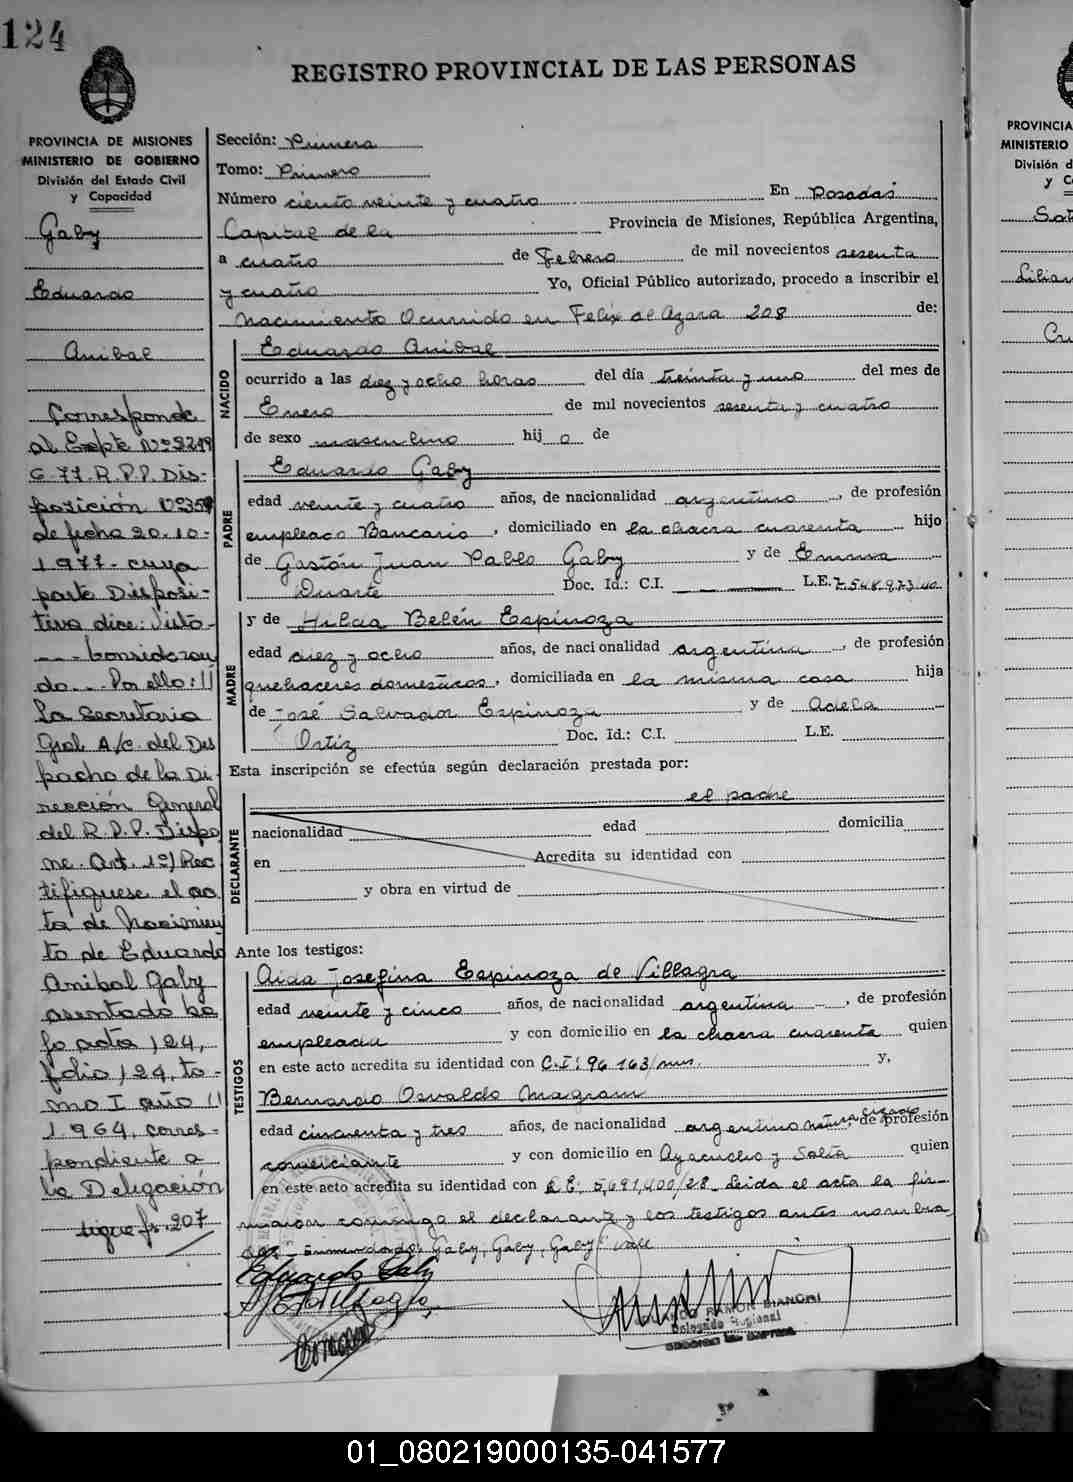 124
REGISTRO PROVINCIAL DE LAS PERSONAS
PROVINCIA DE MISIONES
MINISTERIO DE GOBIERNO
División del Estado Civil
y Capacidad
Gaby
Eduardo
Anibal
Corresponde
al Expte Nº 3219
G-77-R.P.P. Dis-
posición Nº 359
de fecha 20-10-
1977- cuya
parte Disposi-
tiva dice: Visto-
--- Consideran
do... Por ello: !!
La Secretaria
Gral A/c. del Des
pacho de la Di
rección General
del R.P.P. Dispo
ne. Art. 1º) Rec
tifiquese el ac
ta de Nacimien
to de Eduardo
Anibal Gaby
asentado ba
jo acta 124,
folio 124, to-
mo I año !!
1.964, corres-
pondiente a
la Delegación
sigue fs. 207
Sección: Primera
Tomo: Primero
Número ciento veinte y cuatro En Posadas
Capital de la Provincia de Misiones, República Argentina,
a cuatro de Febrero de mil novecientos sesenta
y cuatro Yo, Oficial Público autorizado, procedo a inscribir el
nacimiento Ocurrido en Felix de Azara 208 de:
NACIDO
Eduardo Anibal
ocurrido a las diez y ocho horas del día treinta y uno del mes de
Enero de mil novecientos sesenta y cuatro
de sexo masculino hij o de
PADRE
Eduardo Gaby
edad veinte y cuatro años, de nacionalidad argentino, de profesión
empleado Bancario, domiciliado en la chacra cuarenta hijo
de Gastón Juan Pablo Gaby y de Emma
Duarte Doc. Id.: C.I. L.E. 7.548.973
MADRE
y de Hilda Belén Espinoza
edad diez y ocho años, de nacionalidad argentina, de profesión
quehaceres domesticos, domiciliada en la misma casa hija
de José Salvador Espinoza y de Adela
Ortiz Doc. Id.: C.I. L.E.
Esta inscripción se efectúa según declaración prestada por:
el padre
DECLARANTE
nacionalidad edad domicilia
en Acredita su identidad con
y obra en virtud de
Ante los testigos:
TESTIGOS
Aida Josefina Espinoza de Villagra
edad veinte y cinco años, de nacionalidad argentina, de profesión
empleada y con domicilio en la chacra cuarenta quien
en este acto acredita su identidad con C.I: 96 163/mnes. y,
Bernardo Osvaldo Magram
edad cincuenta y tres años, de nacionalidad argentino naturalizado de profesión
comerciante y con domicilio en Ayacucho y Salta quien
en este acto acredita su identidad con L.E: 5,691,400/28- Leida el acta la fir-
maron conmigo el declarante y los testigos antes nombra
dos - enmendado: Gaby, Gaby, Gaby: vale
Eduardo Gaby
RAMON BIANCHI
Delegado Regional
PROVINCIA
MINISTERIO
División d
Lilian
Cru
01_080219000135-041577